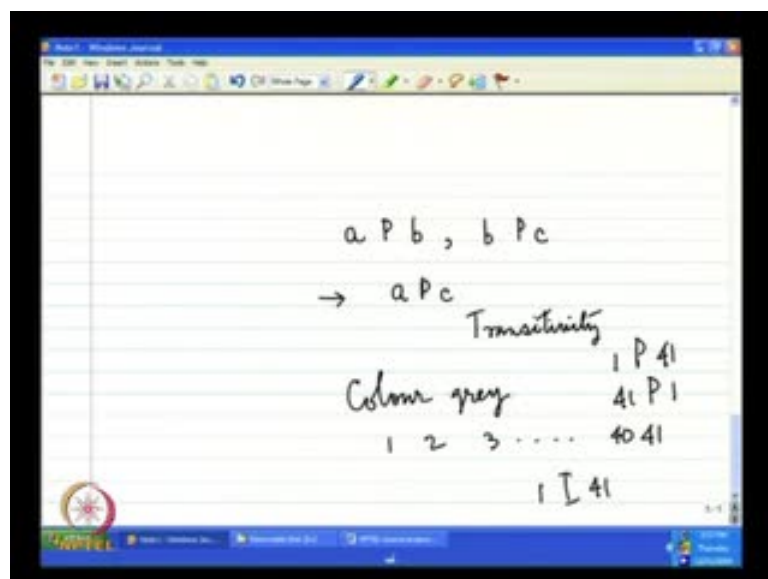 Note1 - Windows Journal
File Edit View Insert Actions Tools Help
a P b , b P c
→ a P c
Transitivity
1 P 41
Colour grey 41 P 1
1 2 3 .... 40 41
1 I 41
NPTEL